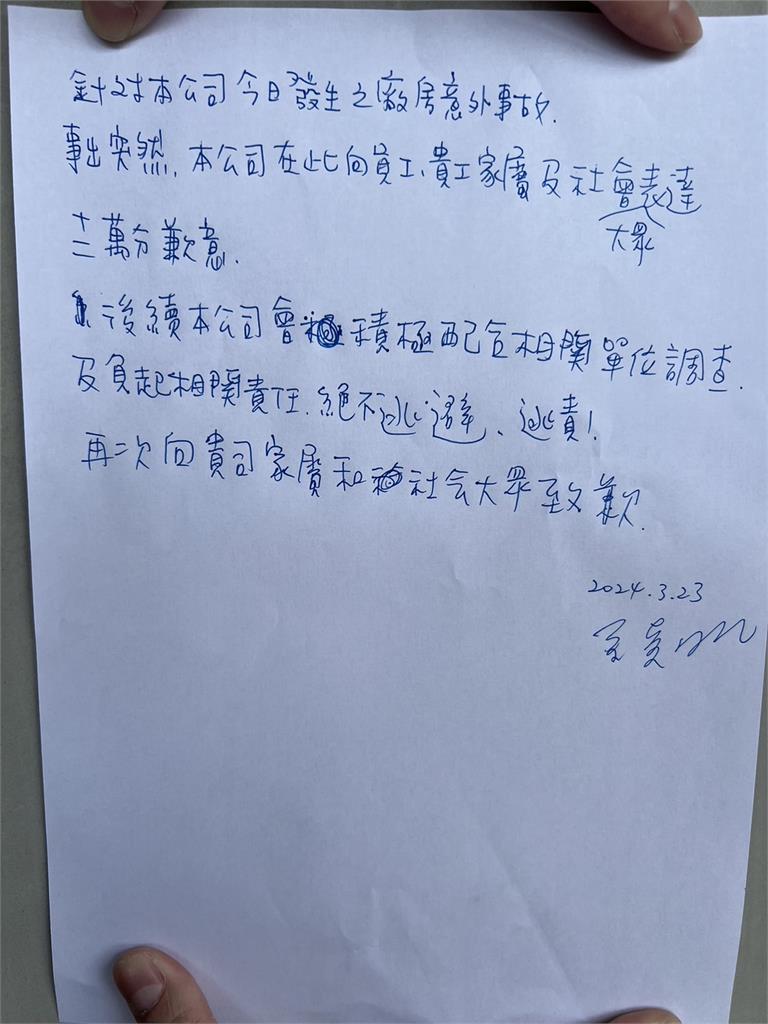 針对本公司今日發生之廠房意外事故.
事出突然.本公司在此向員工、貴工家屬及社會大眾表達
十二萬分歉意.
後續本公司會積極配合相関單位調查.
及負起相関責任.絕不逃避、逃責!
再次向貴司家屬和社会大眾致歉.
2024.3.23